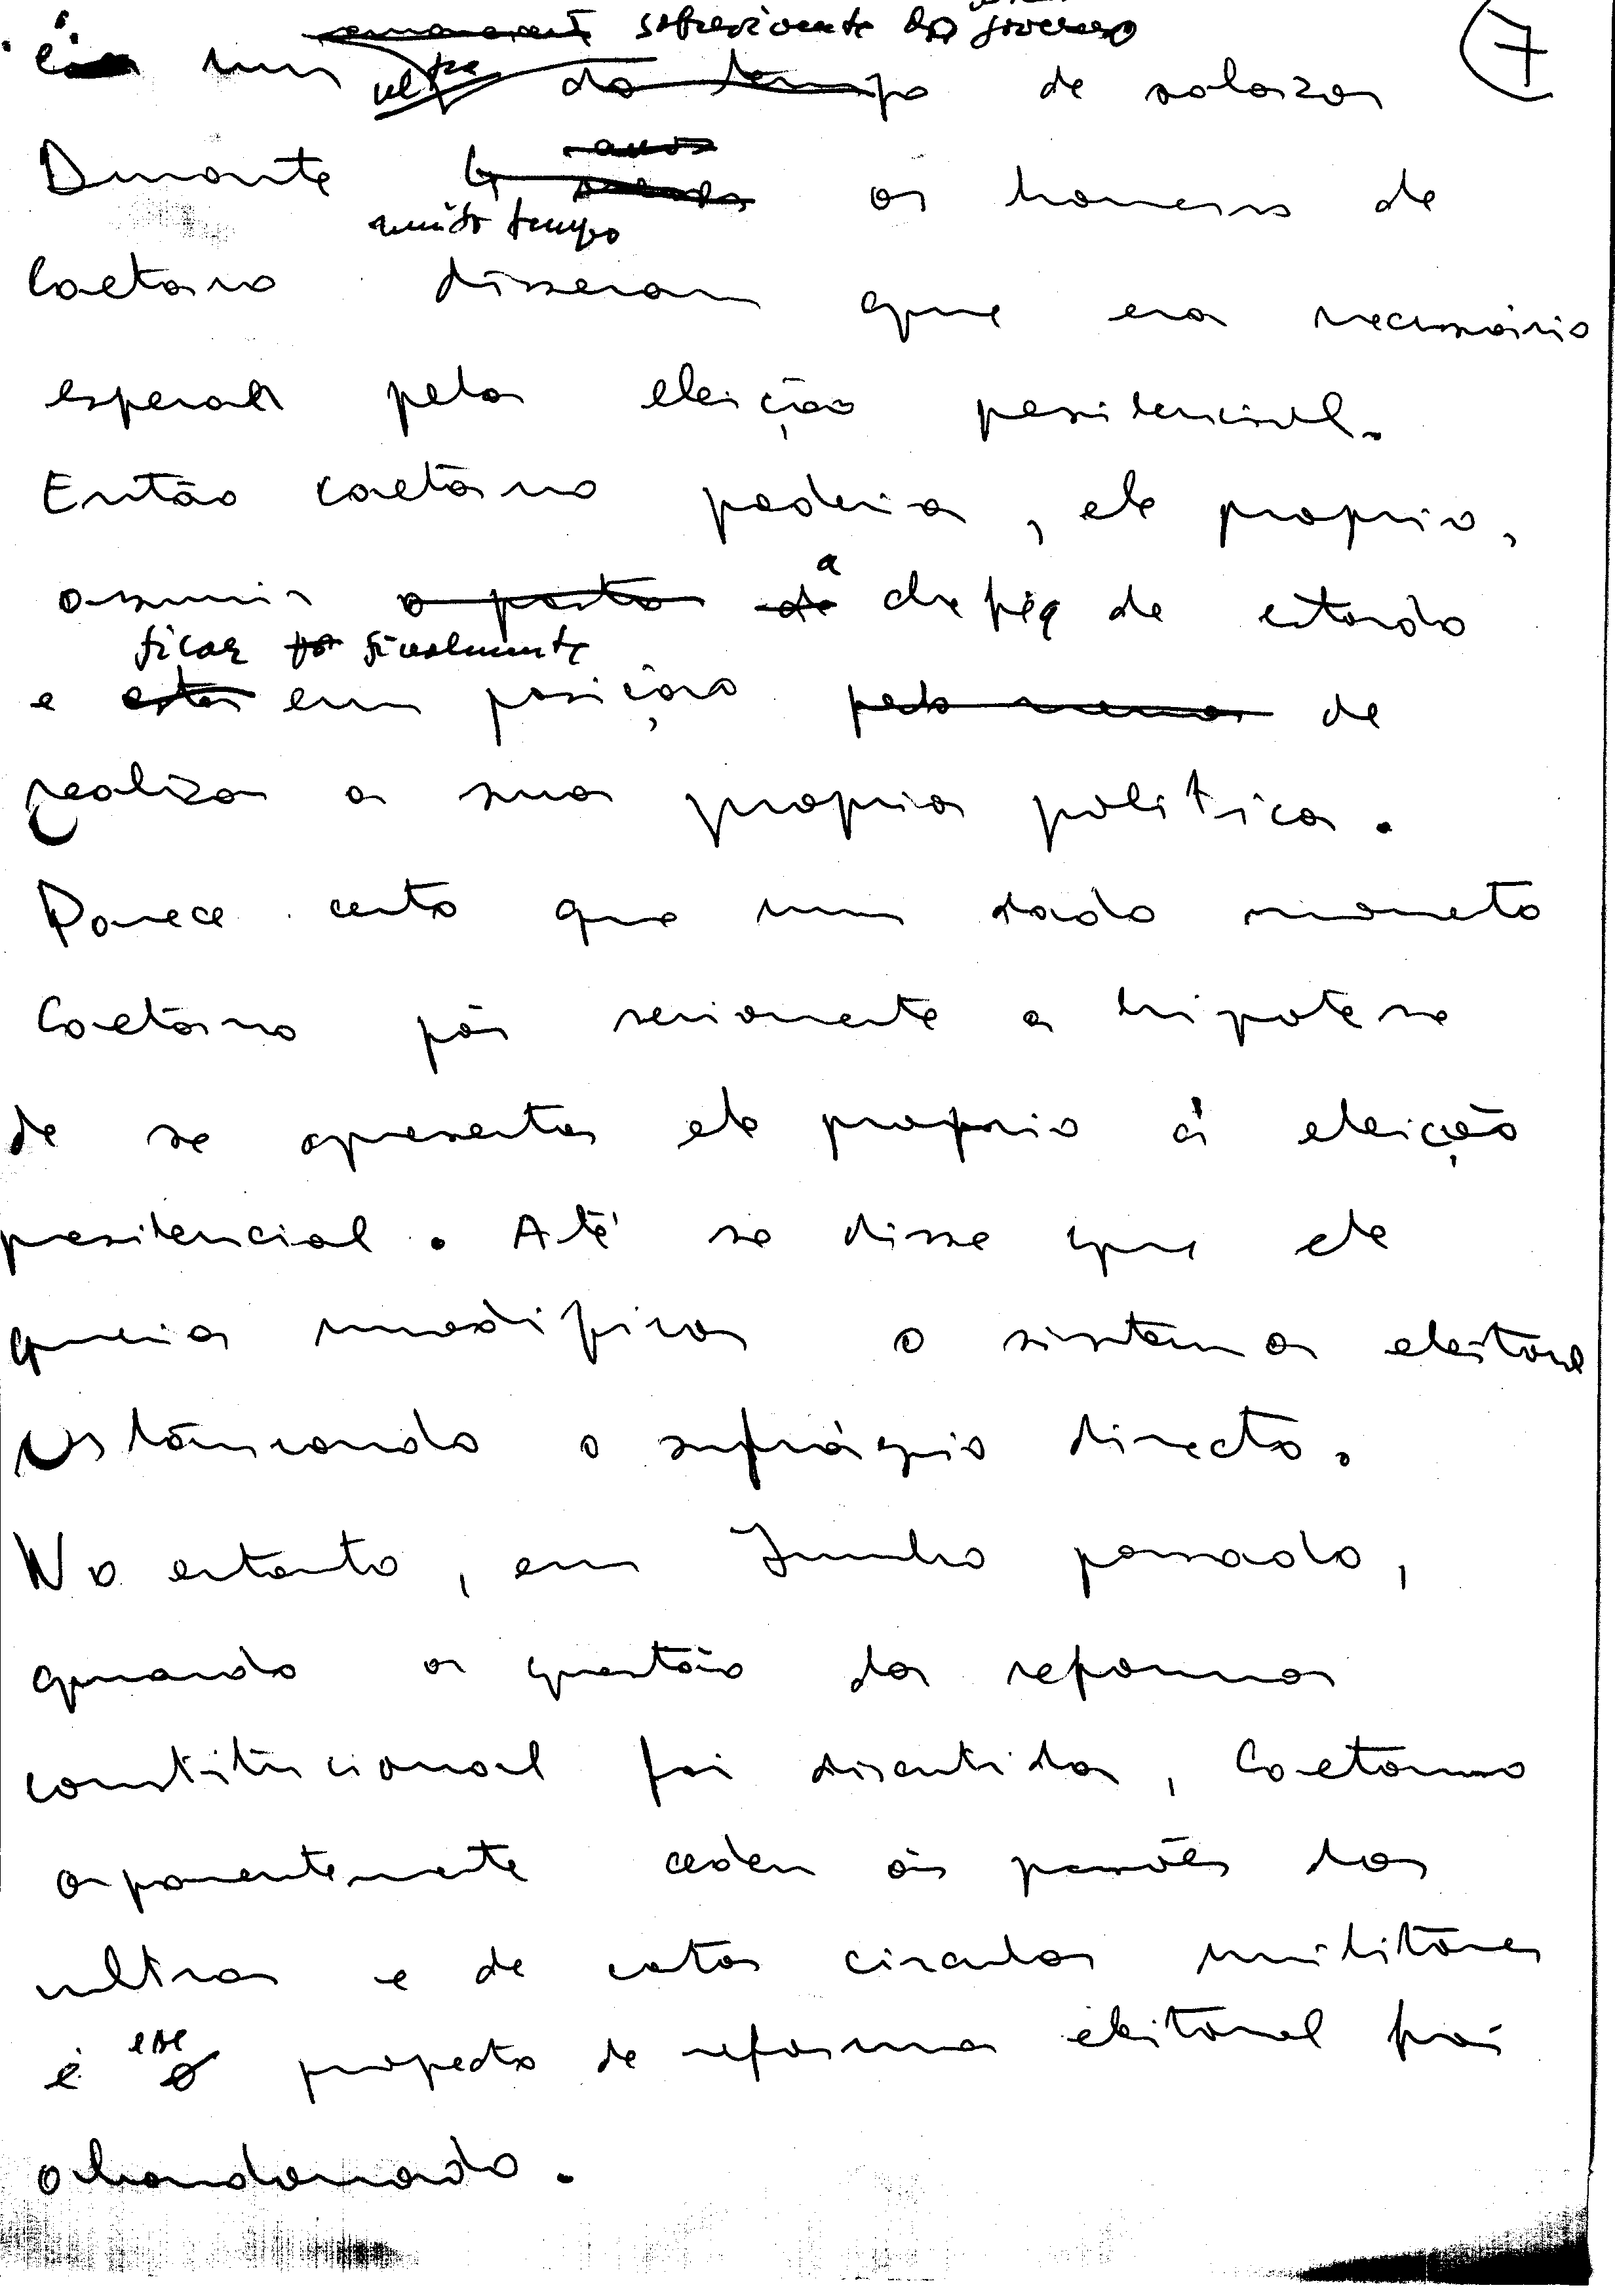 sobrevivente do governo 7
é um ultra do tempo de salazar
Durante 4 anos os homens de
muito tempo
Caetano disseram que era necessário
esperar pela eleição presidencial.
Então caetano poderia, ele proprio,
a
assumir o posto de chefia de estado
ficar finalmente
e estar em posição pelo menos de
realizar a sua propria politica.
Parece certo que num dado momento
Caetano pôs seriamente a hipotese
de se apresentar ele proprio á eleição
presidencial. Até se disse que ele
queria modificar o sistema eleitoral
restaurando o sufrágio directo.
No entanto, em Junho passado,
quando a questão da reforma
constitucional foi discutida, Caetano
aparentemente cedeu às pressões dos
ultras e de certos circulos militares
esse
e o projecto de reforma eleitoral foi
abandonado.